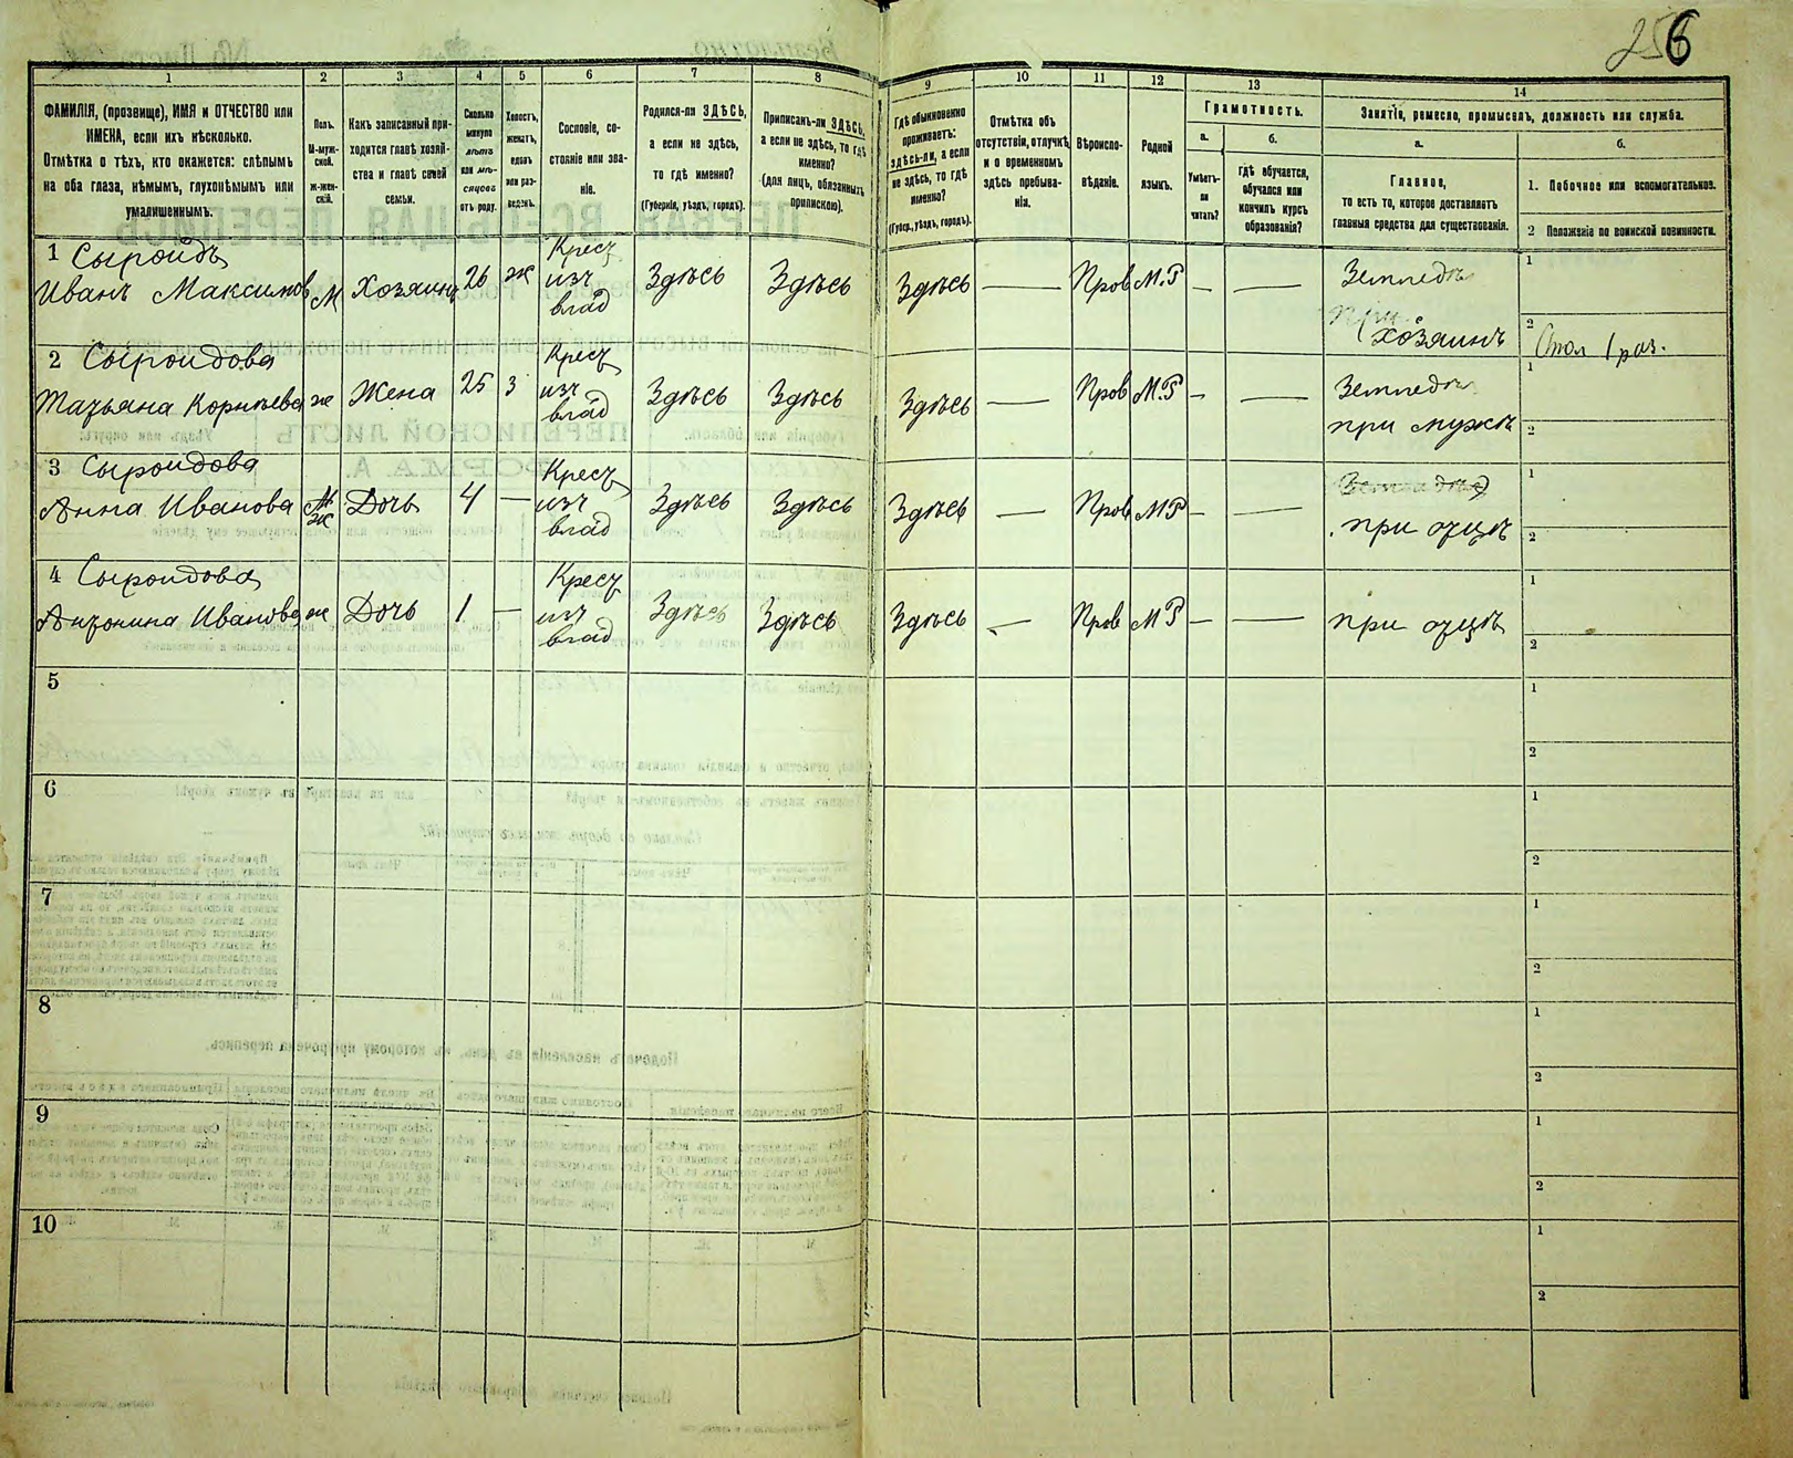 256
1 2 3 4 5 6 7 8 9 10 11 12 13 14
ФАМИЛІЯ, (прозвище), ИМЯ и ОТЧЕСТВО или
ИМЕНА, если ихъ нѣсколько.
Отмѣтка о тѣхъ, кто окажется: слѣпымъ
на оба глаза, нѣмымъ, глухонѣмымъ или
умалишеннымъ.
Полъ.
М-муж-
ской.
ж-жен-
скій.
Какъ записанный при-
ходится главѣ хозяй-
ства и главѣ своей
семьи.
Сколько
минуло
лѣтъ
или мѣ-
сяцевъ
отъ роду.
Холостъ,
женатъ,
вдовъ
или раз-
веденъ.
Сословіе, со-
стояніе или зва-
ніе.
Родился-ли ЗДѢСЬ,
а если не здѣсь,
то гдѣ именно?
(Губернія, уѣздъ, городъ).
Приписанъ-ли ЗДѢСЬ,
а если не здѣсь, то гдѣ
именно?
(для лицъ, обязанныхъ
припискою).
Гдѣ обыкновенно
проживаетъ:
здѣсь-ли, а если
не здѣсь, то гдѣ
именно?
(Губер., уѣздъ, городъ).
Отмѣтка объ
отсутствіи, отлучкѣ
и о временномъ
здѣсь пребыва-
ніи.
Вѣроиспо-
вѣданіе.
Родной
языкъ.
Грамотность.
а.
Умѣетъ-
ли
читать?
б.
Гдѣ обучается,
обучался или
кончилъ курсъ
образованія?
Занятія, ремесло, промыселъ, должность или служба.
а.
Главное,
то есть то, которое доставляетъ
главныя средства для существованія.
б.
1. Побочное или вспомогательное.
2 Положеніе по воинской повинности.
1 Сыроидъ
Иванъ Максимов М Хозяинъ 26 ж Крест изъ влад Здѣсь Здѣсь Здѣсь — Прав М.Р — — Земледѣ
При хозяинъ
1
2
2 Сыроидова
Татьяна Корнѣева ж Жена 25 З Крест изъ влад Здѣсь Здѣсь Здѣсь — Прав М.Р — — Земледѣ
при мужѣ
1
2
3 Сыроидова
Анна Иванова М ж Дочь 4 — Крест изъ влад Здѣсь Здѣсь Здѣсь — Прав МР — —
при отцѣ
1
2
4 Сыроидова
Антонина Иванова ж Дочь 1 — Крест изъ влад Здѣсь Здѣсь Здѣсь — Прав МР — — при отцѣ
1
2
5
1
2
6
1
2
7
1
2
8
1
2
9
1
2
10
1
2